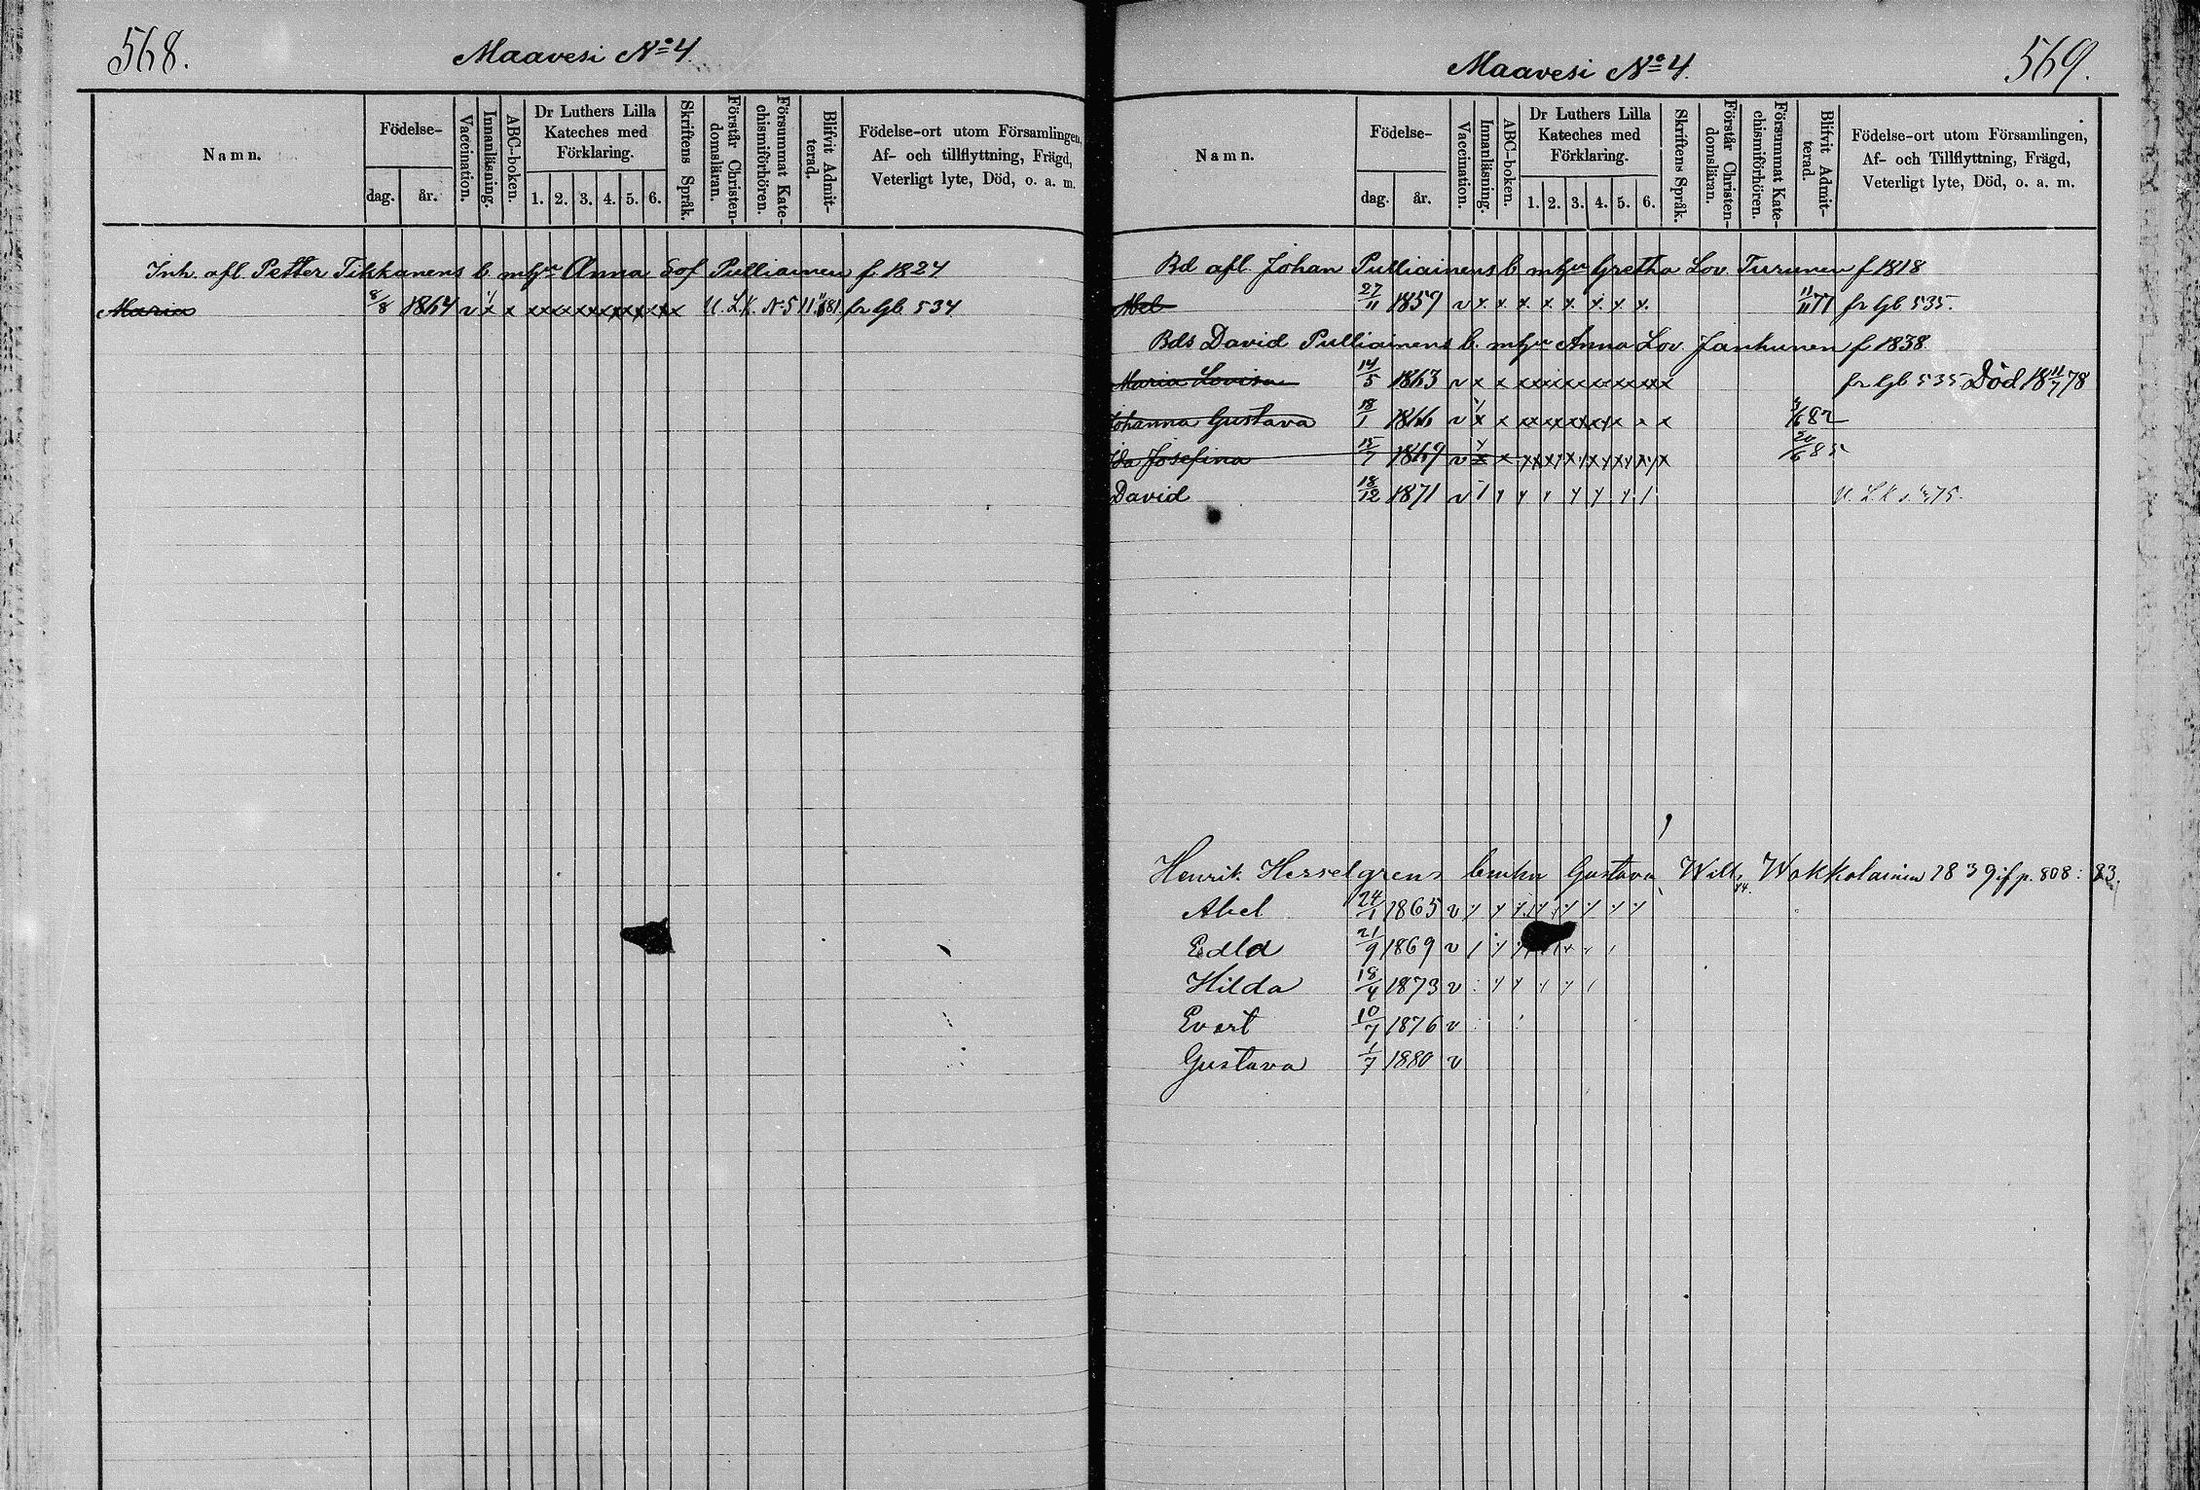 568.
Maavesi No 4.
Namn.
Födelse-
dag. år.
Vaccination.
Innanläsning.
ABC-boken.
Dr Luthers Lilla Kateches med Förklaring.
1. 2. 3. 4. 5. 6.
Skriftens Språk.
Förstår Christen-domsläran.
Försummat Kate-chismiförhören.
Blifvit Admit-terad.
Födelse-ort utom Församlingen,
Af- och tillflyttning, Frägd,
Veterligt lyte, Död, o. a. m.
Inh. afl. Petter Tikkanens b. m hu Anna Sof Pulliainen f. 1824
Maria 8/8 1864 v x x x x x x x x fr Gb 534
569.
Maavesi No 4.
Namn.
Födelse-
dag. år.
Vaccination.
Innanläsning.
ABC-boken.
Dr Luthers Lilla Kateches med Förklaring.
1. 2. 3. 4. 5. 6.
Skriftens Språk.
Förstår Christen-domsläran.
Försummat Kate-chismiförhören.
Blifvit Admit-terad.
Födelse-ort utom Församlingen,
Af- och Tillflyttning, Frägd,
Veterligt lyte, Död, o. a. m.
Bd afl. Johan Pulliainens b m hu Gretha Lov. Turunen f 1818
Abel 27/11 1859 v x x x x x x x x 11/11 77 fr Gb 535.
Bds David Pulliainens b. m hu Anna Lov. Janhunen f 1838.
Maria Lovisa 14/5 1863 v x x x x x x x x x fr Gb 535 Död 18 11/7 78
Johanna Gustava 18/1 1866 v x x x x x x x x x 82
Ida Josefina 15/7 1869 v x x x x x x x x x 20/6 85
David 18/12 1871 v
Henrik Herselgrens Gustava Wilh. Wakkolainen 1839 if p. 808: 83.
Abel 24/1 1865 v
Edla 21/9 1869 v
Hilda 18/4 1873 v
Evert 10/7 1876 v
Gustava 1/7 1880 v